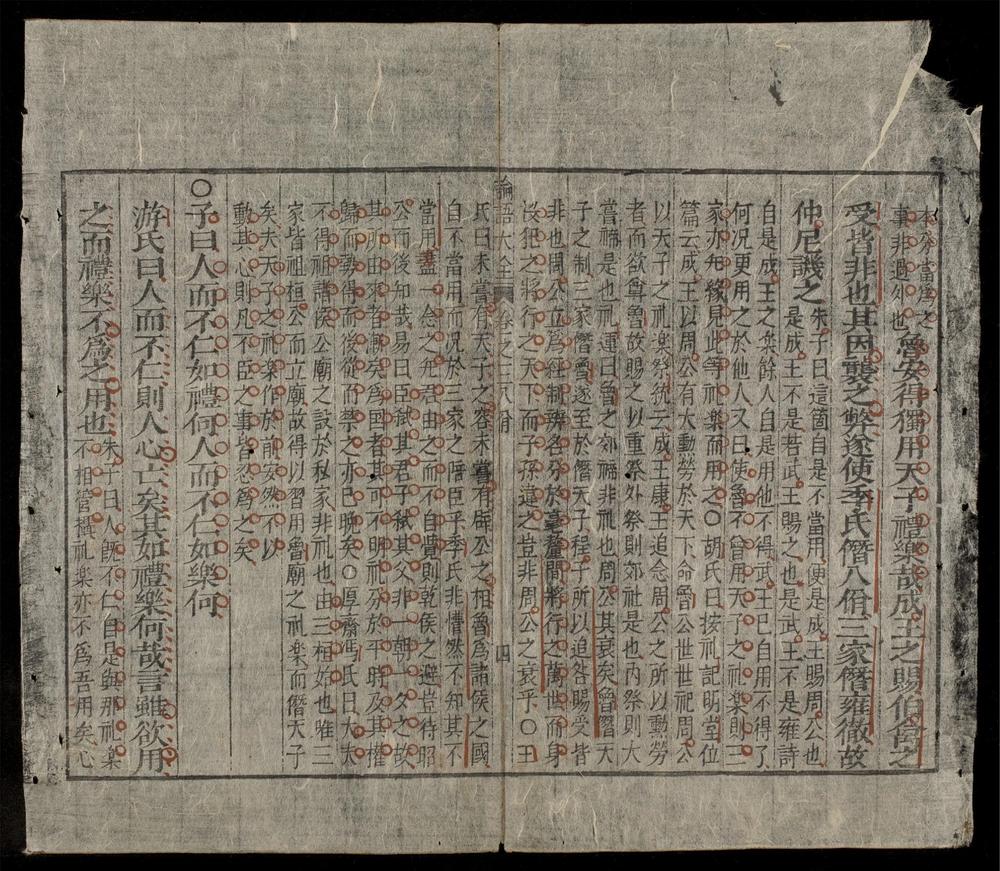 本分當爲之
事非過外也
魯安得獨用天子禮樂哉成王之賜伯禽之
受皆非也其因襲之弊遂使季氏僭八佾三家僭雍徹故
仲尼譏之
朱子曰這箇自是不當用便是成王賜周公也
是成王不是若武王賜之也是武王不是雍詩
自是成王之楽餘人自是用他不得武王已自用不得了
何況更用之於他人又曰使魯不曾用天子之礼楽則三
家亦無緣見此等礼楽而用之○胡氏曰按礼記明堂位
篇云成王以周公有大勳勞於天下命魯公世世祀周公
以天子之礼楽祭統云成王康王追念周公之所以勳勞
者而欲尊魯故賜之以重祭外祭則郊社是也内祭則大
嘗禘是也礼運曰魯之郊禘非礼也周公其衰矣魯僭天
子之制三家僭魯遂至於僭天子程子所以追咎賜受皆
非也周公立爲經制辨名分於毫釐間將行之萬世而身
歿犯之將行之天下而子孫違之豈非周公之衰乎○王
論語大全 卷之三八佾 四
氏曰未嘗有天子之容未嘗有辟公之相魯爲諸侯之國
自不當用而況於三家之陪臣乎季氏非懵然不知其不
當用盡一念之無君由之而不自覺則乾侯之避豈待昭
公而後知哉易曰臣弑其君子弑其父非一朝一夕之故
其所由來者漸矣爲囯者其可不明礼分於平時及其權
歸而勢得而後從而禁之亦已晩矣○厚齋馮氏曰大夫
不得祖諸侯公廟之設於私家非礼也由三桓始也唯三
家皆祖桓公而立廟故得以習用魯廟之礼楽而僭天子
矣夫天子之礼楽作於前安然不以
動其心則凡不臣之事皆忍爲之矣
○子曰人而不仁如禮何人而不仁如樂何
游氏曰人而不仁則人心亡矣其如禮樂何哉言雖欲用
之而禮樂不爲之用也
朱子曰人旣不仁自是與那礼楽
不相管攝礼楽亦不爲吾用矣心